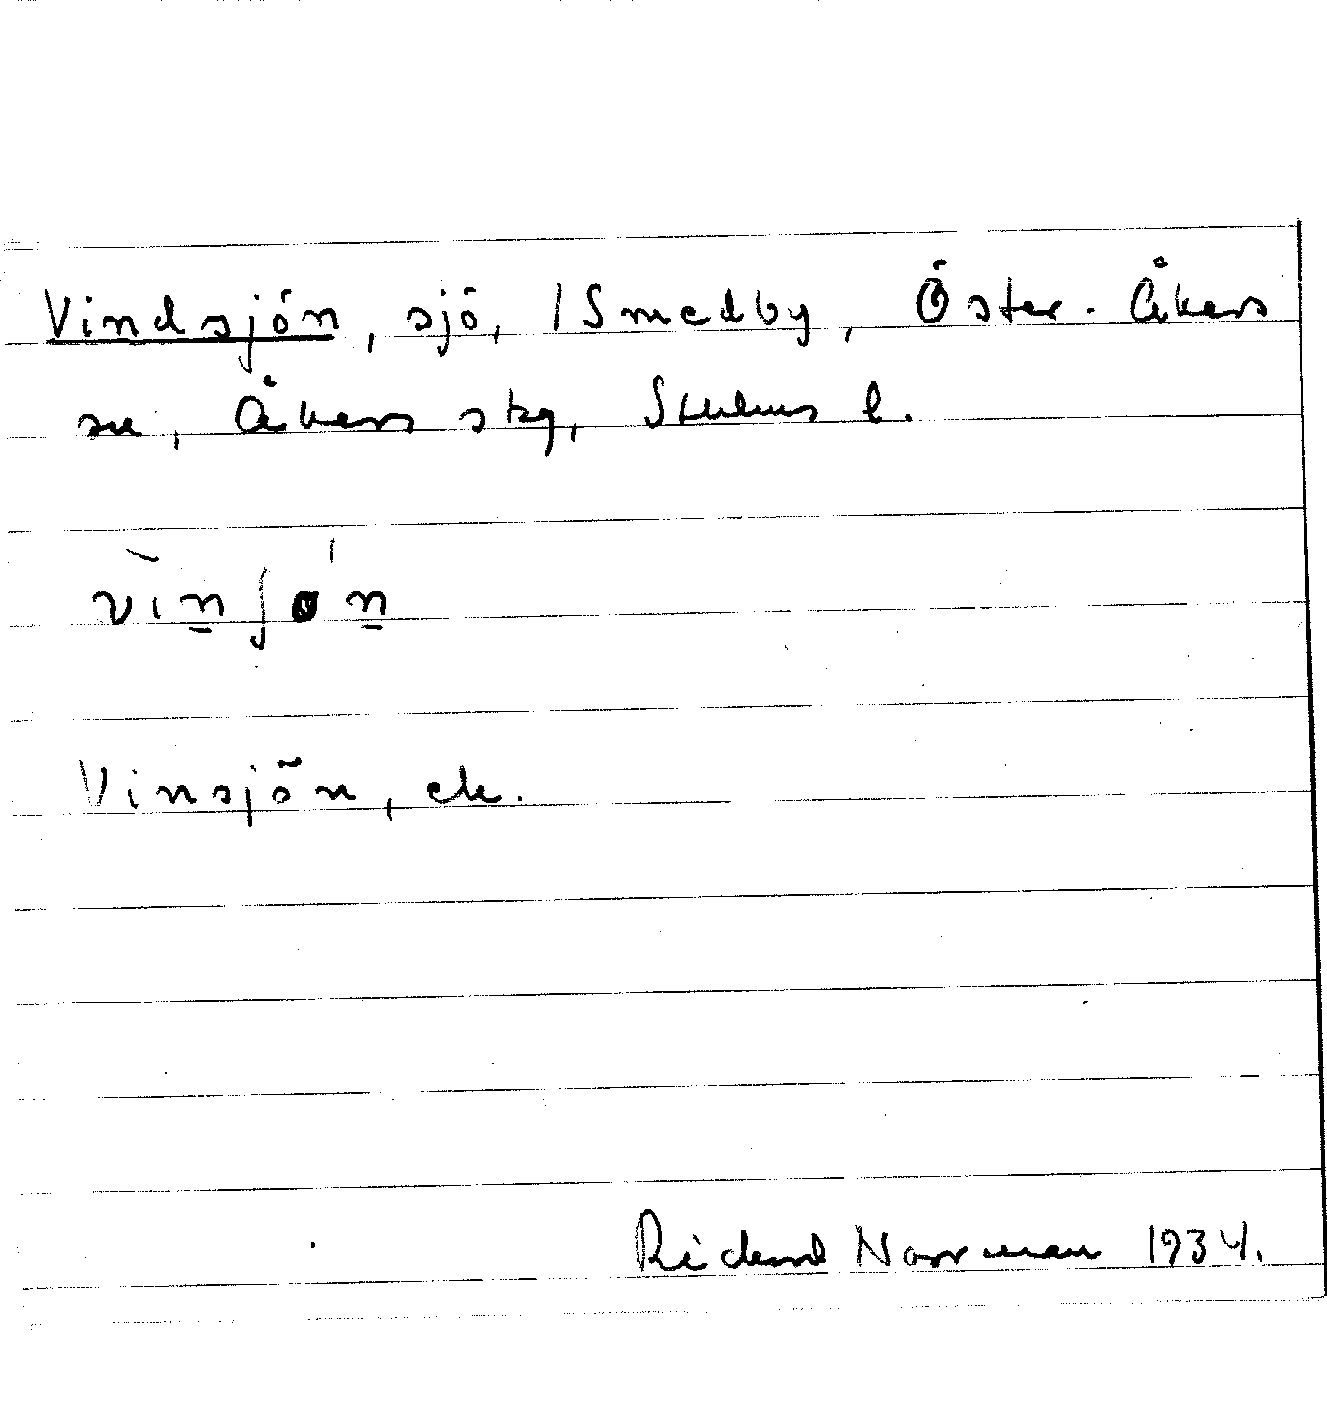 Vindsjön, sjö, /Smedby, Öster-Åkers
sn, Åkers skg, Sthlms l.
vìnʃøń
Vinsjön, ek.
Rickard Norrman 1934.